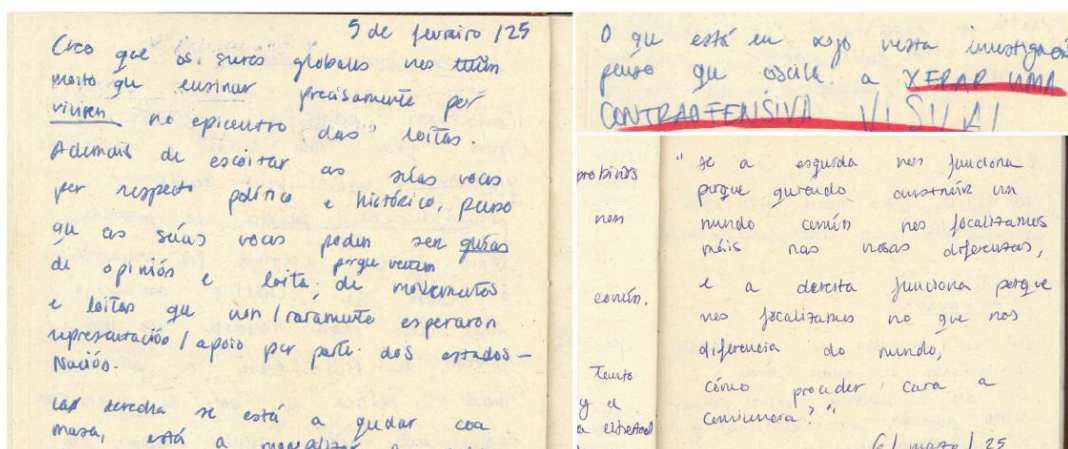 5 de febreiro /25
Creo que os sures globales nos teñen
moito que ensinar precisamente por
viviren no epicentro das loitas.
Ademais de escoitar as súas voces
per respecto político e histórico, penso
que as súas voces poden ser guías
de opinión e loita; porque veñen de movementos
e loitas que non/raramente esperaron
representación / apoio por parte dos estados-
Nación.
derecha se está a quedar coa
masa, está a
O que está en xogo nesta investigación
penso que oscila a XERAR UNHA
CONTRAOFENSIVA VISUAL
"se a esquerda non funciona
porque querendo construír un
mundo común nos focalizamos
máis nas nosas diferenzas,
e a dereita funciona porque
nos focalizamos no que nos
diferencia do mundo,
cómo proceder cara a
convivencia?"
6/ marzo / 25
non
común.
y a